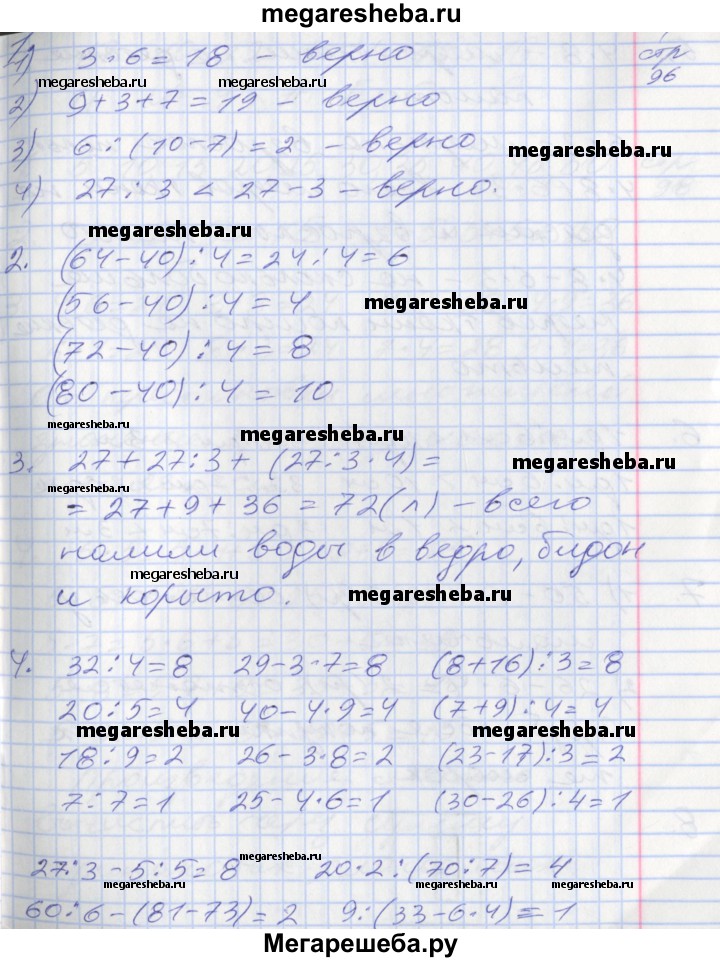 megaresheba.ru
стр 96
1. 1) 3·6=18 – верно
megaresheba.ru megaresheba.ru
2) 9+3+7=19 – верно
3) 6:(10-7)=2 – верно
megaresheba.ru
4) 27:3 < 27-3 – верно.
megaresheba.ru
2. (64-40):4=24:4=6
(56-40):4=4
megaresheba.ru
(72-40):4=8
(80-40):4=10
megaresheba.ru
3. 27+27:3+(27:3·4)=
megaresheba.ru
megaresheba.ru
=27+9+36=72(л) – всего
налили воды в ведро, бидон
megaresheba.ru
и корыто.
megaresheba.ru
4. 32:4=8 29-3·7=8 (8+16):3=8
20:5=4 40-4·9=4 (7+9):4=4
megaresheba.ru megaresheba.ru
18:9=2 26-3·8=2 (23-17):3=2
7:7=1 25-4·6=1 (30-26):4=1
megaresheba.ru
27:3-5:5=8 20·2:(70:7)=4
megaresheba.ru megaresheba.ru
60:6-(81-73)=2 9:(33-6·4)=1
Мегарешеба.ру